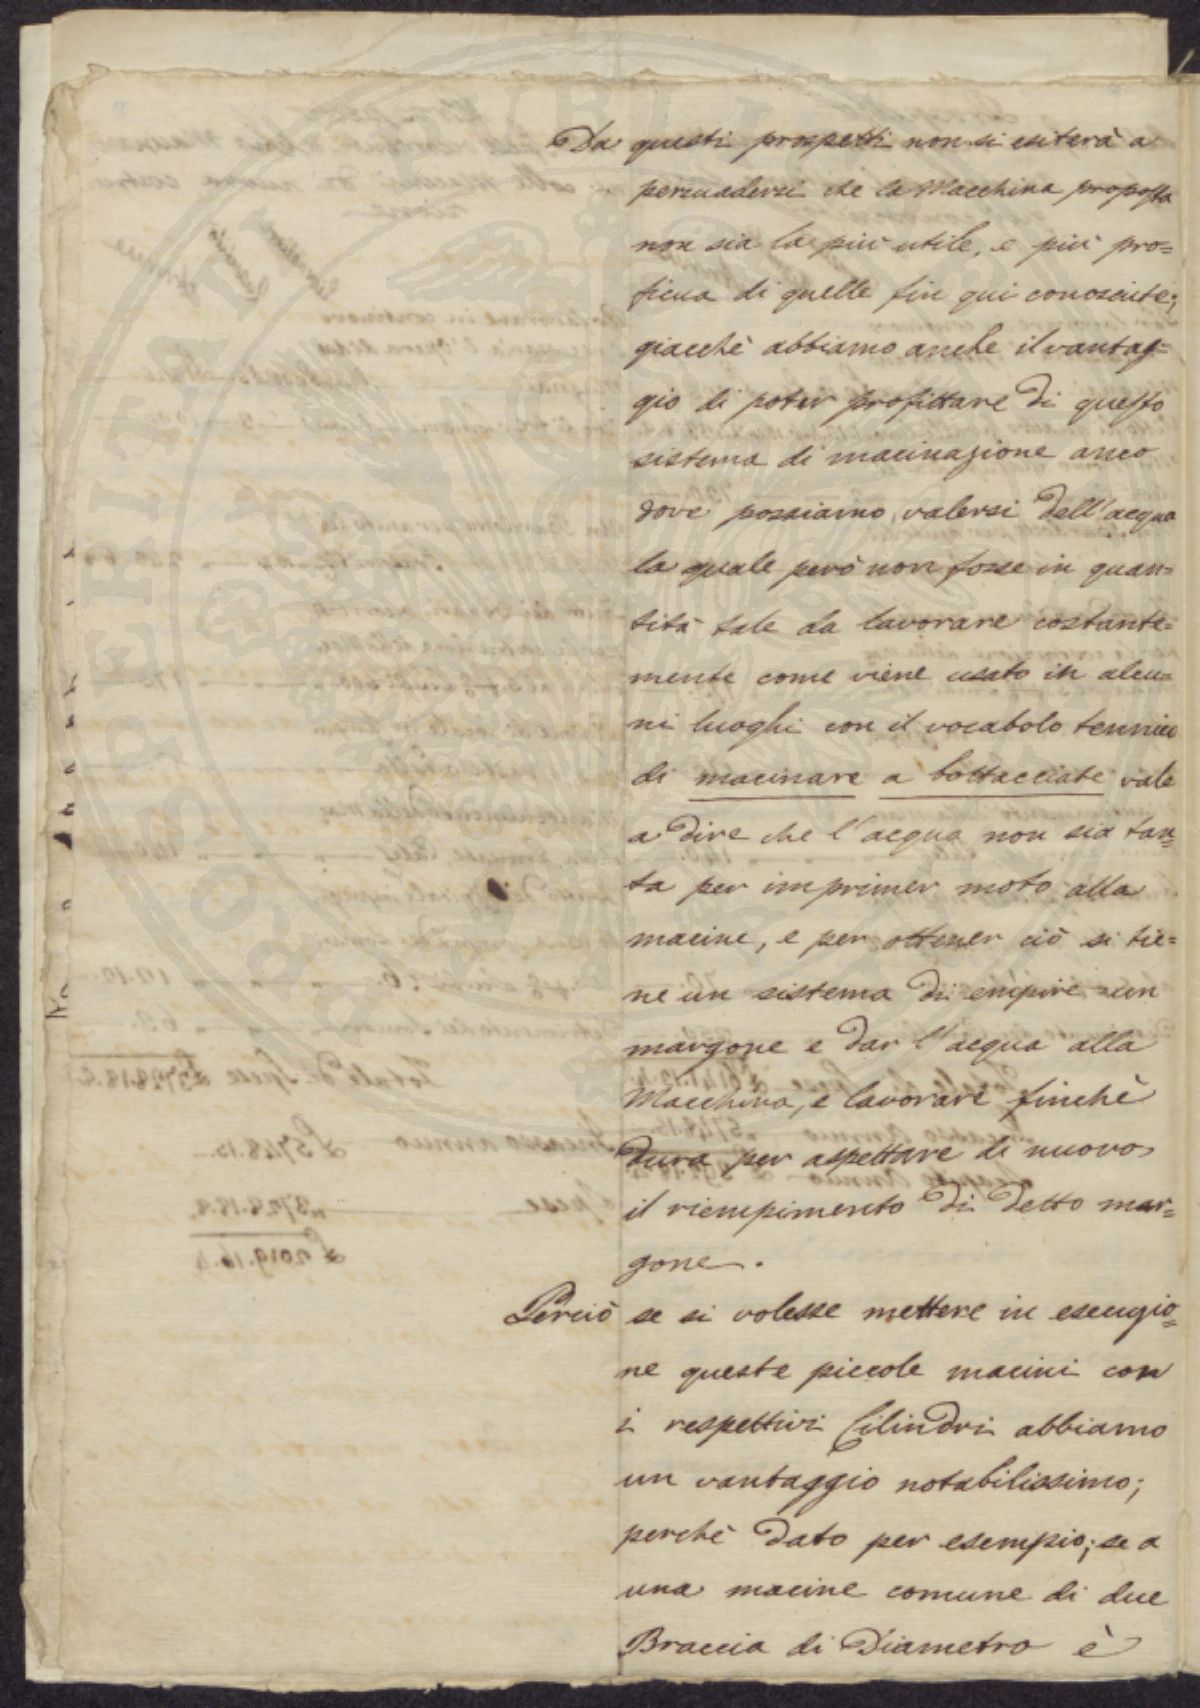 Da questi prospetti non si esiterà a
persuadersi che la Macchina proposta
non sia la più utile, e più pro=
ficua di quelle fin qui conosciute;
giacchè abbiamo anche il vantag=
gio di poter profittare di questo
sistema di macinazione anco
dove possiamo valersi dell'acqua
la quale però non fosse in quan=
tità tale da lavorare costante=
mente come viene usato in alcu=
ni luoghi con il vocabolo tennico
di macinare a bottacciate vale
a dire che l'acqua non sia tan=
ta per imprimer moto alla
macine, e per ottener ciò si tie=
ne un sistema di empire un
margone e dar l'acqua alla
Macchina, e lavorare finchè
dura per aspettare di nuovo
il riempimento di detto mar=
gone.
Perciò se si volesse mettere in esecuzio=
ne queste piccole macini con
i respettivi Cilindri abbiamo
un vantaggio notabilissimo;
perchè dato per esempio; se a
una macine comune di due
Braccia di Diametro è